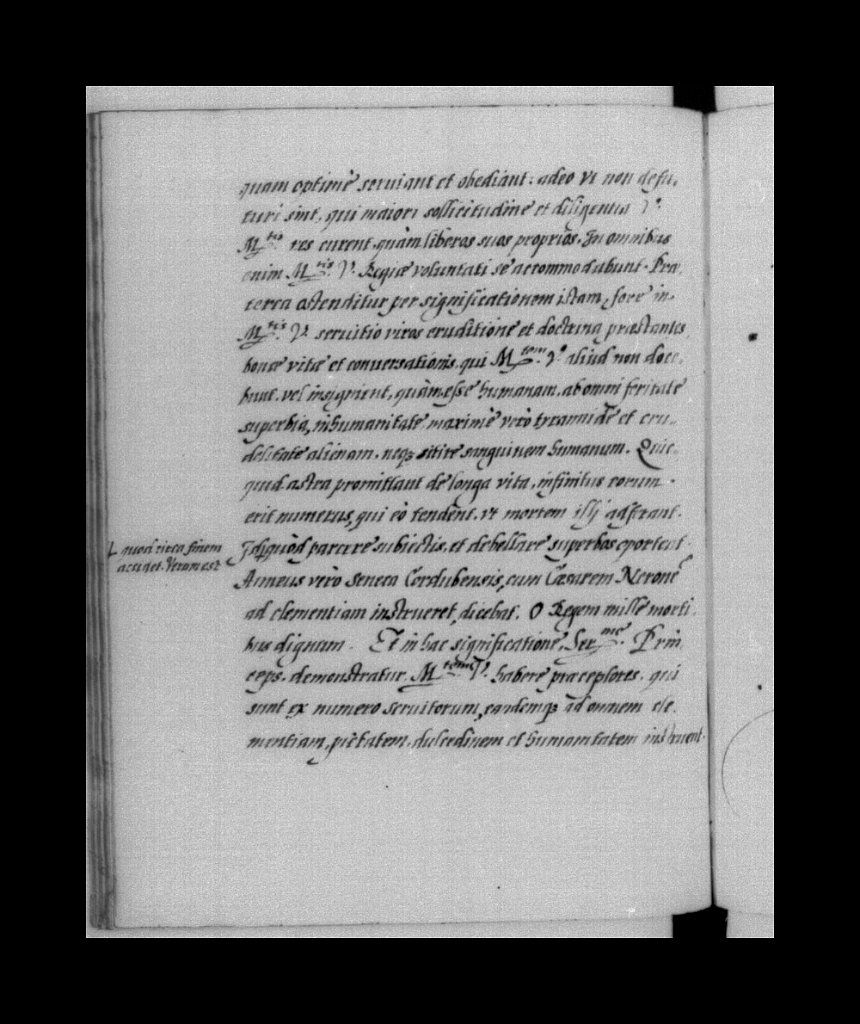 quam optimè seruiant et obediant: adeo vt non defu-
turi sint, qui maiori sollicitudine et diligentia V.ᵉ
M.ᵗⁱˢ res curent, quàm liberos suos proprios. In omnibus
enim M.ᵗⁱˢ V. Regiæ voluntati se accommodabunt. Præ-
terea ostenditur per significationem istam, fore in
M.ᵗⁱˢ V. seruitio viros eruditione et doctrina præstantes
bonæ vitæ et conuersationis, qui M.ᵗᵉᵐ V. aliud non doce-
bunt, vel insignient, quàm esse humanam, ab omni feritate
superbia, inhumanitate maximè verò tyrannide et cru-
delitate alienam, neqз sitire sanguinem humanum. Quic-
quid astra promittant de longa vita, infinitus rerum
erit numerus, qui eò tendent, vt mortem illj afferant.
L quod circa finem
accidet. Verum est
Idqз quòd parcere subiectis, et debellare superbos oporteat.
Anneus verò Seneca Cordubensis, cum Cæsarem Neronē
ad clementiam instrueret, dicebat. O Regem mille morti-
bus dignum. Et in hac significatione, Ser.ᵐᵉ Prin-
ceps, demonstratur M.ᵗᵉᵐ V. habere præceptores, qui
sunt ex numero seruitorum, eandemqз ad omnem cle-
mentiam, pietatem, dulcedinem et humanitatem instruent.